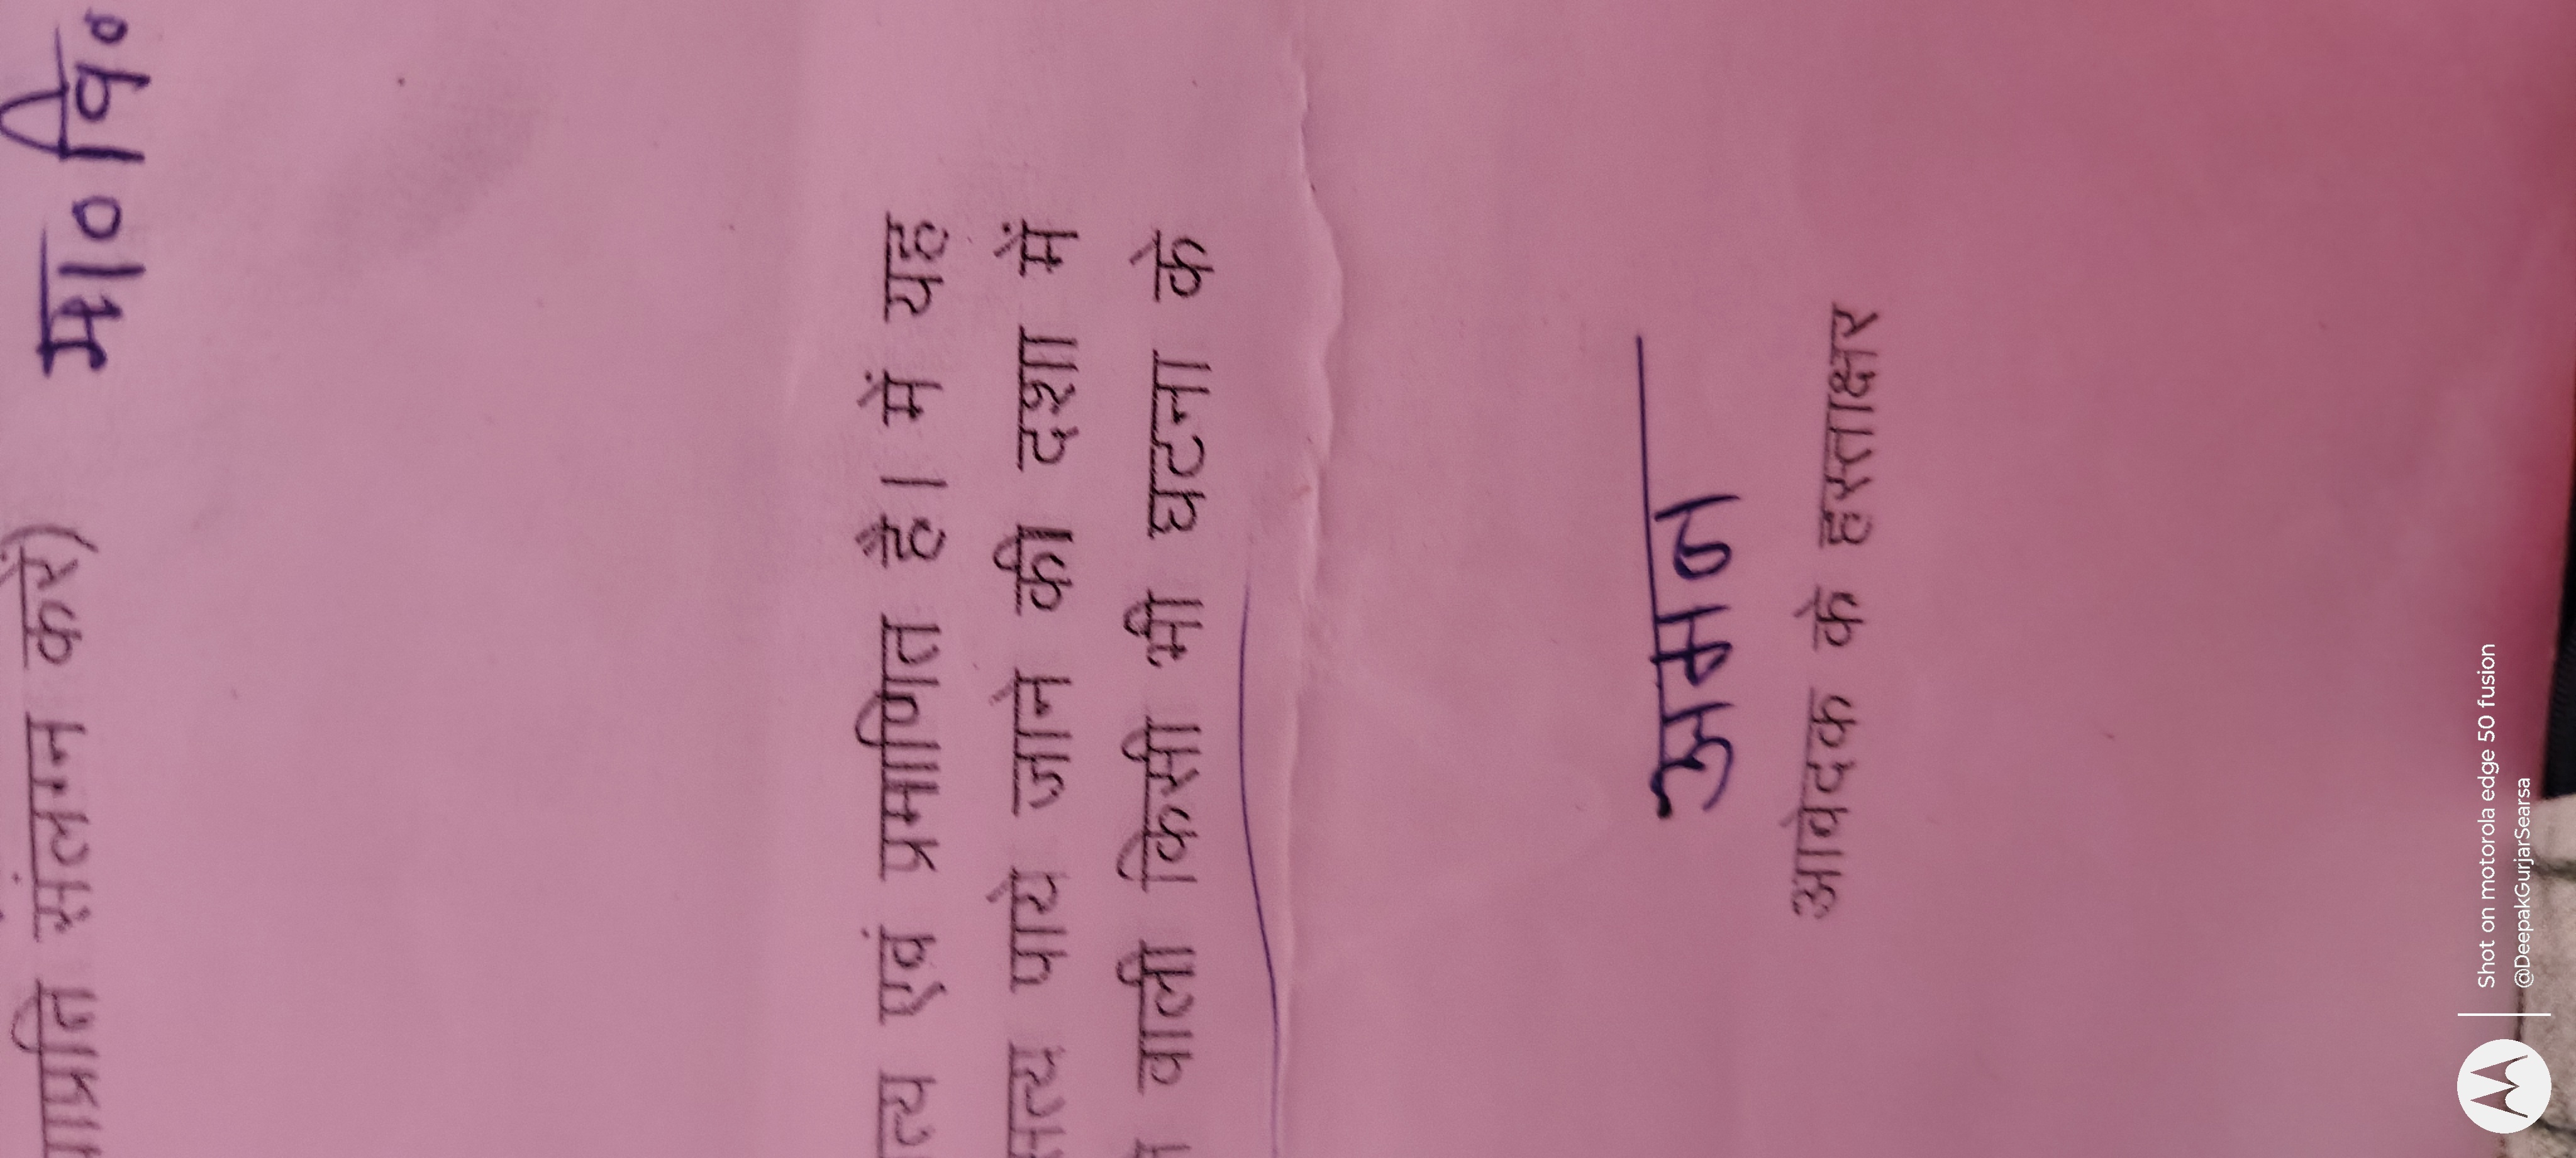 संलग्न करें) मा० वि०
एवं प्रमाणित है। में यह
पाये जाने की दशा में
वाली किसी भी घटना के
अमन
आवेदक के हस्ताक्षर
Shot on motorola edge 50 fusion
@DeepakGurjarSearsa